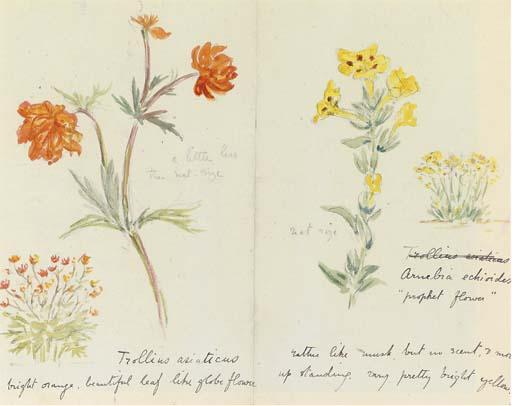 a little less
than nat. size
Trollius asiaticus
bright orange. beautiful leaf like globe flower
nat size
Trollius asiaticus
Arnebia echioides
"prophet flower"
rather like musk but no scent, & more
up standing. very pretty bright yellow.